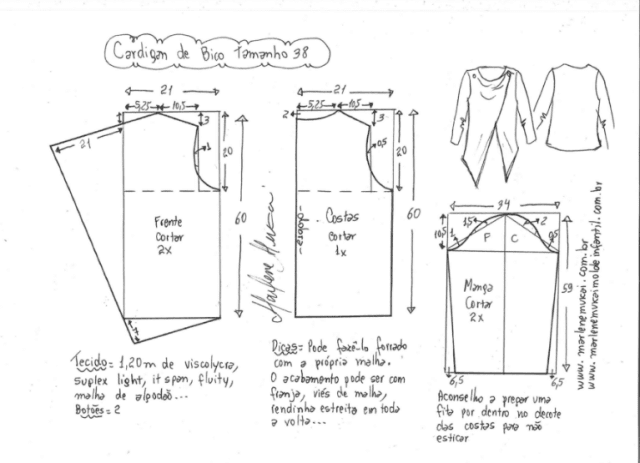 Cardigan de Bico Tamanho 38
21
5,25
10,5
3
21
1
20
60
Frente
cortar
2x
21
2
5,25
10,5
3
0,5
20
60
-dobra-
Costas
cortar
1x
Marlene Mukai
34
10,5
1
1,5
2
0,5
F
C
59
Manga
Cortar
2x
6,5
6,5
www.marlenemukai.com.br
www.marlenemukaimoldeinfantil.com.br
Tecido= 1,20m de viscolycra,
suplex light, it span, fluity,
malha de algodão...
Botões= 2
Dicas= Pode fazê-lo forrado
com a própria malha.
O acabamento pode ser com
franja, viés de malha,
rendinha estreita em toda
a volta...
Aconselho a prepar uma
fita por dentro no decote
das costas para não
esticar